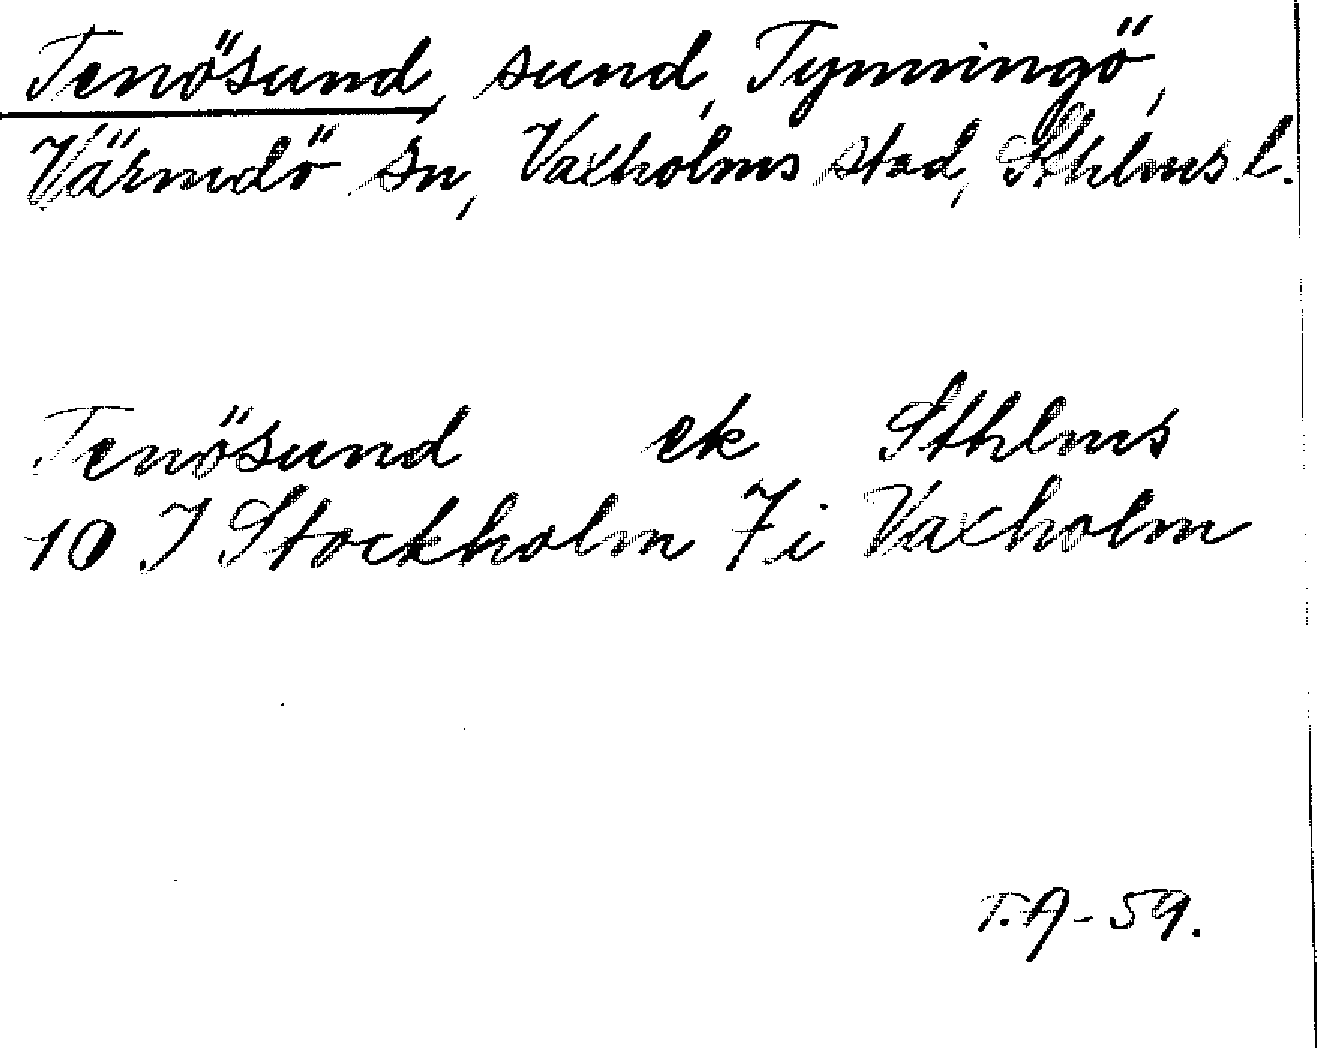 Tenösund, sund, Tynningö,
Värmdö sn, Vaxholms stad, Sthlms l.
Tenösund ek Sthlms
10 I Stockholm 7 i Vaxholm
T.A-59.